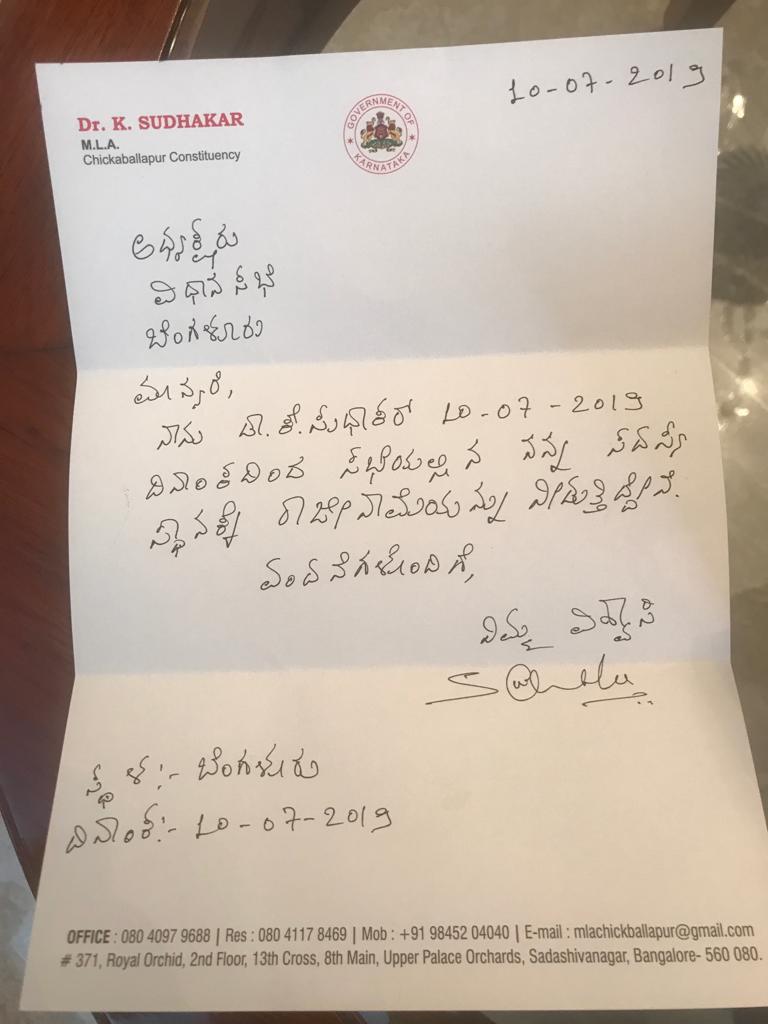 10-07-2019
Dr. K. SUDHAKAR
M.L.A.
Chickaballapur Constituency
GOVERNMENT OF
KARNATAKA
ಅಧ್ಯಕ್ಷರು
ವಿಧಾನ ಸಭೆ
ಬೆಂಗಳೂರು
ಮಾನ್ಯರೆ,
ನಾನು ಡಾ. ಕೆ. ಸುಧಾಕರ್ 10-07-2019
ದಿನಾಂಕದಿಂದ ಸಭೆಯಲ್ಲಿನ ನನ್ನ ಸದಸ್ಯ
ಸ್ಥಾನಕ್ಕೆ ರಾಜೀನಾಮೆಯನ್ನು ನೀಡುತ್ತಿದ್ದೇನೆ.
ವಂದನೆಗಳೊಂದಿಗೆ,
ನಿಮ್ಮ ವಿಶ್ವಾಸಿ
ಸ್ಥಳ:- ಬೆಂಗಳೂರು
ದಿನಾಂಕ:- 10-07-2019
OFFICE : 080 4097 9688 | Res : 080 4117 8469 | Mob : +91 98452 04040 | E-mail : mlachickballapur@gmail.com
# 371, Royal Orchid, 2nd Floor, 13th Cross, 8th Main, Upper Palace Orchards, Sadashivanagar, Bangalore- 560 080.